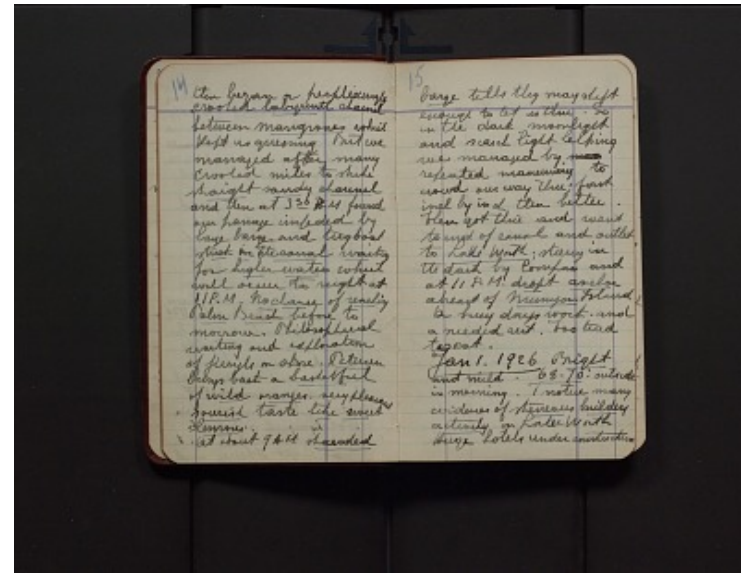 14
then began a perplexing
crooked labyrinth channel
between mangroves which
kept us guessing. But we
managed after many
crooked miles to strike
straight sandy channel
and then at 3 30 P.M. found
our passage impeded by
large barge and tugboat
stuck in the canal waiting
for higher water which
will occur to night at
11 P.M. No chance of reaching
Palm Beach before to
morrow. Philosophical
waiting and exploration
of jungle on shore. Peterson
brings back a basketful
of wild oranges, very pleasant
sourish taste like sweet
lemons.
at about 9 P.M. stranded
15
barge tells they may shift
enough to let us thru. So
in the dark moonlight
and search light helping
we managed by
repeated maneuvering to
crowd our way thru first
inch by inch then better.
Then got thru and went
to end of canal and outlet
to Lake Worth, steering in
the dark by Compass and
at 11 P.M. dropt anchor
abreast of Munyon Island.
A busy days work and
a needed rest. Too tired
to eat.
Jan 1. 1926 Bright
and mild. 68-70° outside
in morning. I notice many
evidences of strenuous building
activity on Lake Worth
huge hotels under construction